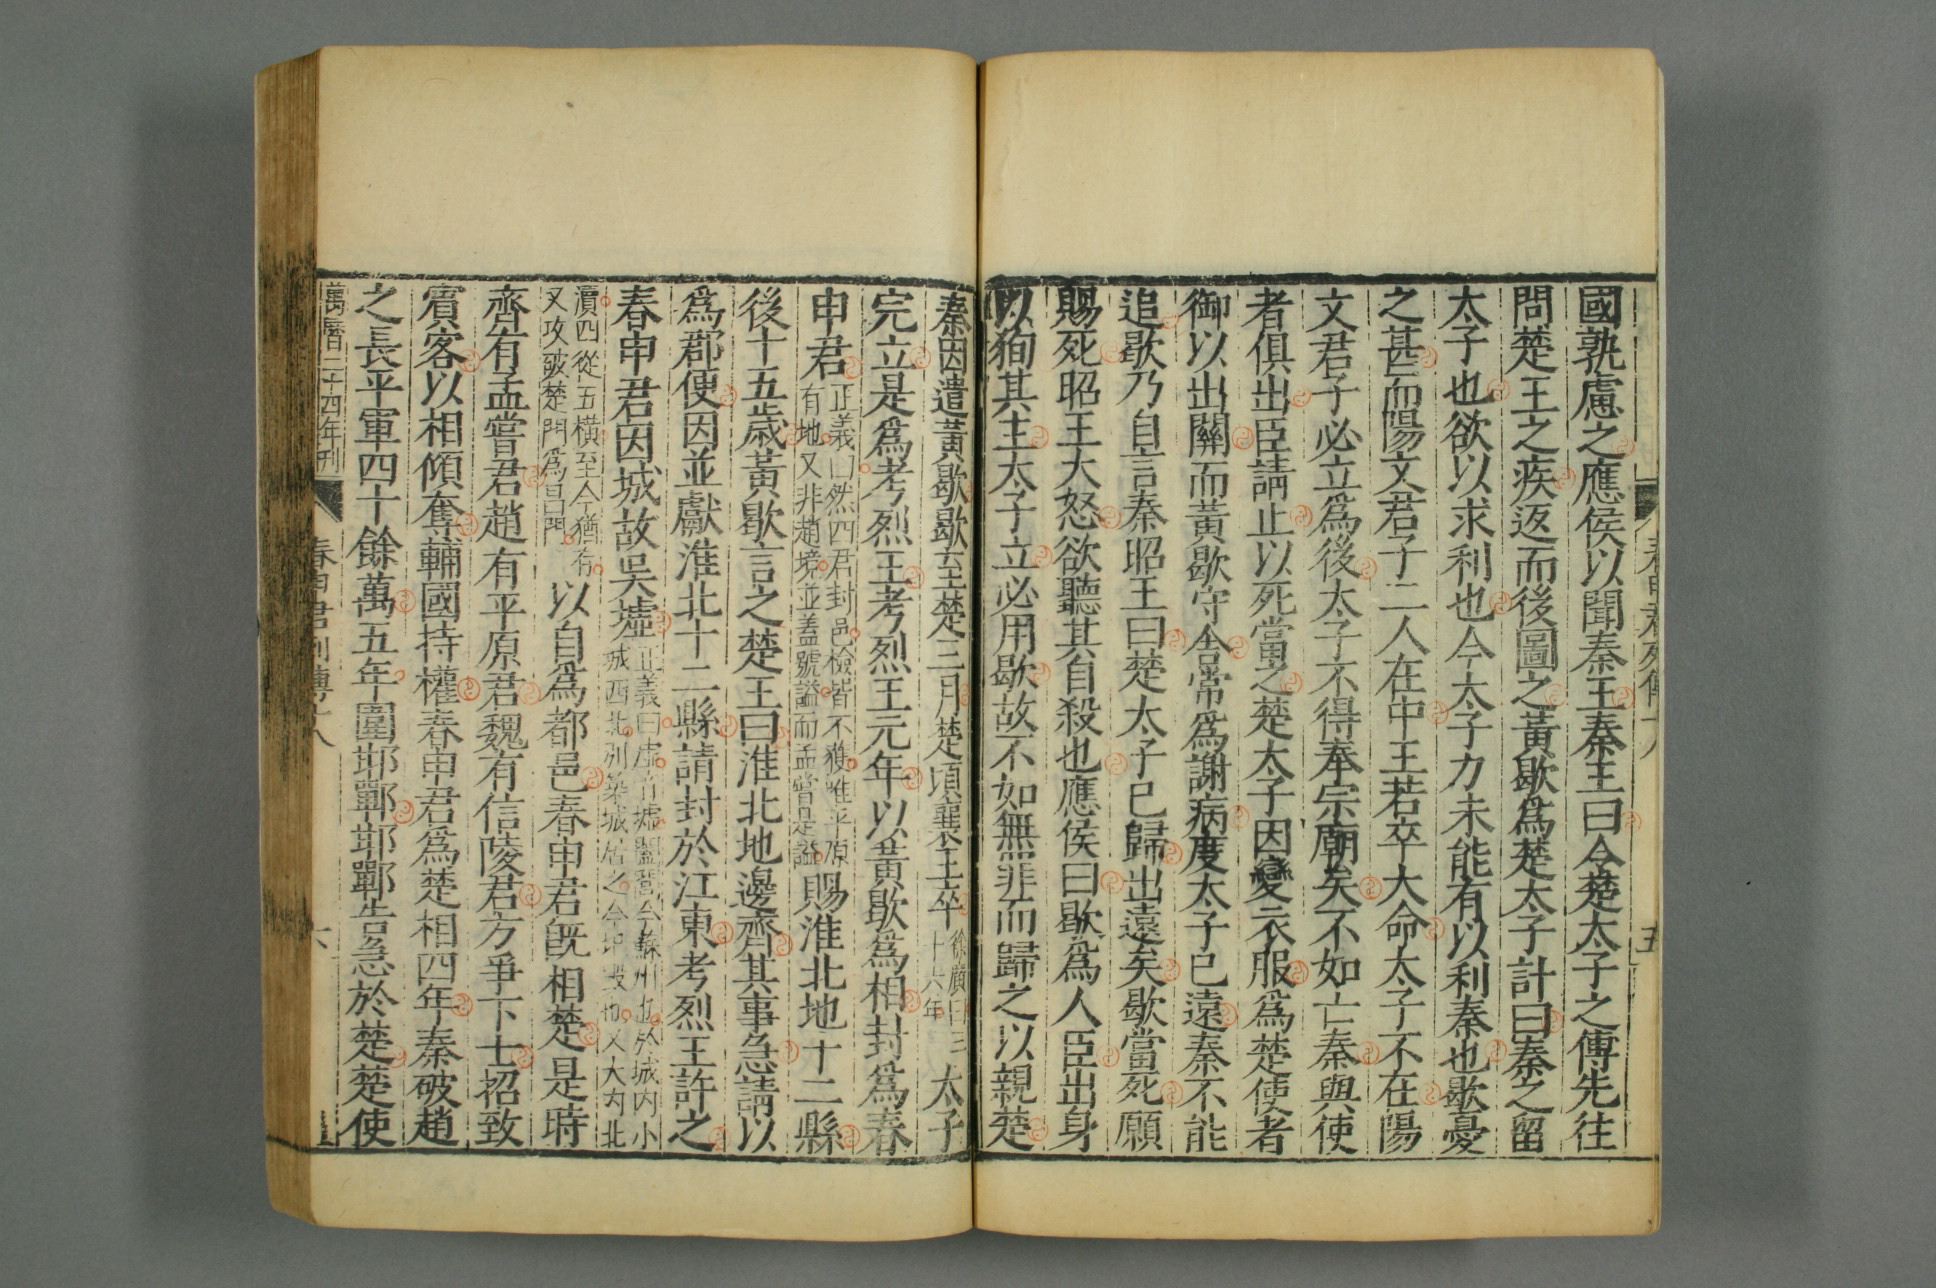 春申君列傳十八
五
國孰慮之應侯以聞秦王秦王曰令楚太子之傅先往
問楚王之疾返而後圖之黃歇爲楚太子計曰秦之留
太子也欲以求利也今太子力未能有以利秦也歇憂
之甚而陽文君子二人在中王若卒大命太子不在陽
文君子必立爲後太子不得奉宗廟矣不如亡秦與使
者俱出臣請止以死當之楚太子因變衣服爲楚使者
御以出關而黃歇守舍常爲謝病度太子已遠秦不能
追歇乃自言秦昭王曰楚太子已歸出遠矣歇當死願
賜死昭王大怒欲聽其自殺也應侯曰歇爲人臣出身
以狥其主太子立必用歇故不如無罪而歸之以親楚
秦因遣黃歇歇至楚三月楚頃襄王卒徐廣曰三十六年太子
完立是爲考烈王考烈王元年以黃歇爲相封爲春
申君正義曰然四君封邑檢皆不獲唯平原有地又非趙境並蓋號謚而孟嘗是謚賜淮北地十二縣
後十五歲黃歇言之楚王曰淮北地邊齊其事急請以
爲郡便因並獻淮北十二縣請封於江東考烈王許之
春申君因城故吳墟正義曰虛音墟闔閭今蘇州也於城内小城西北別築城居之今圯毀也又大内北
瀆四從五橫至今猶存又攻破楚門爲昌門以自爲都邑春申君既相楚是時
齊有孟嘗君趙有平原君魏有信陵君方爭下士招致
賓客以相傾奪輔國持權春申君爲楚相四年秦破趙
之長平軍四十餘萬五年圍邯鄲邯鄲告急於楚楚使
萬曆二十四年刊
春申君列傳十八
六